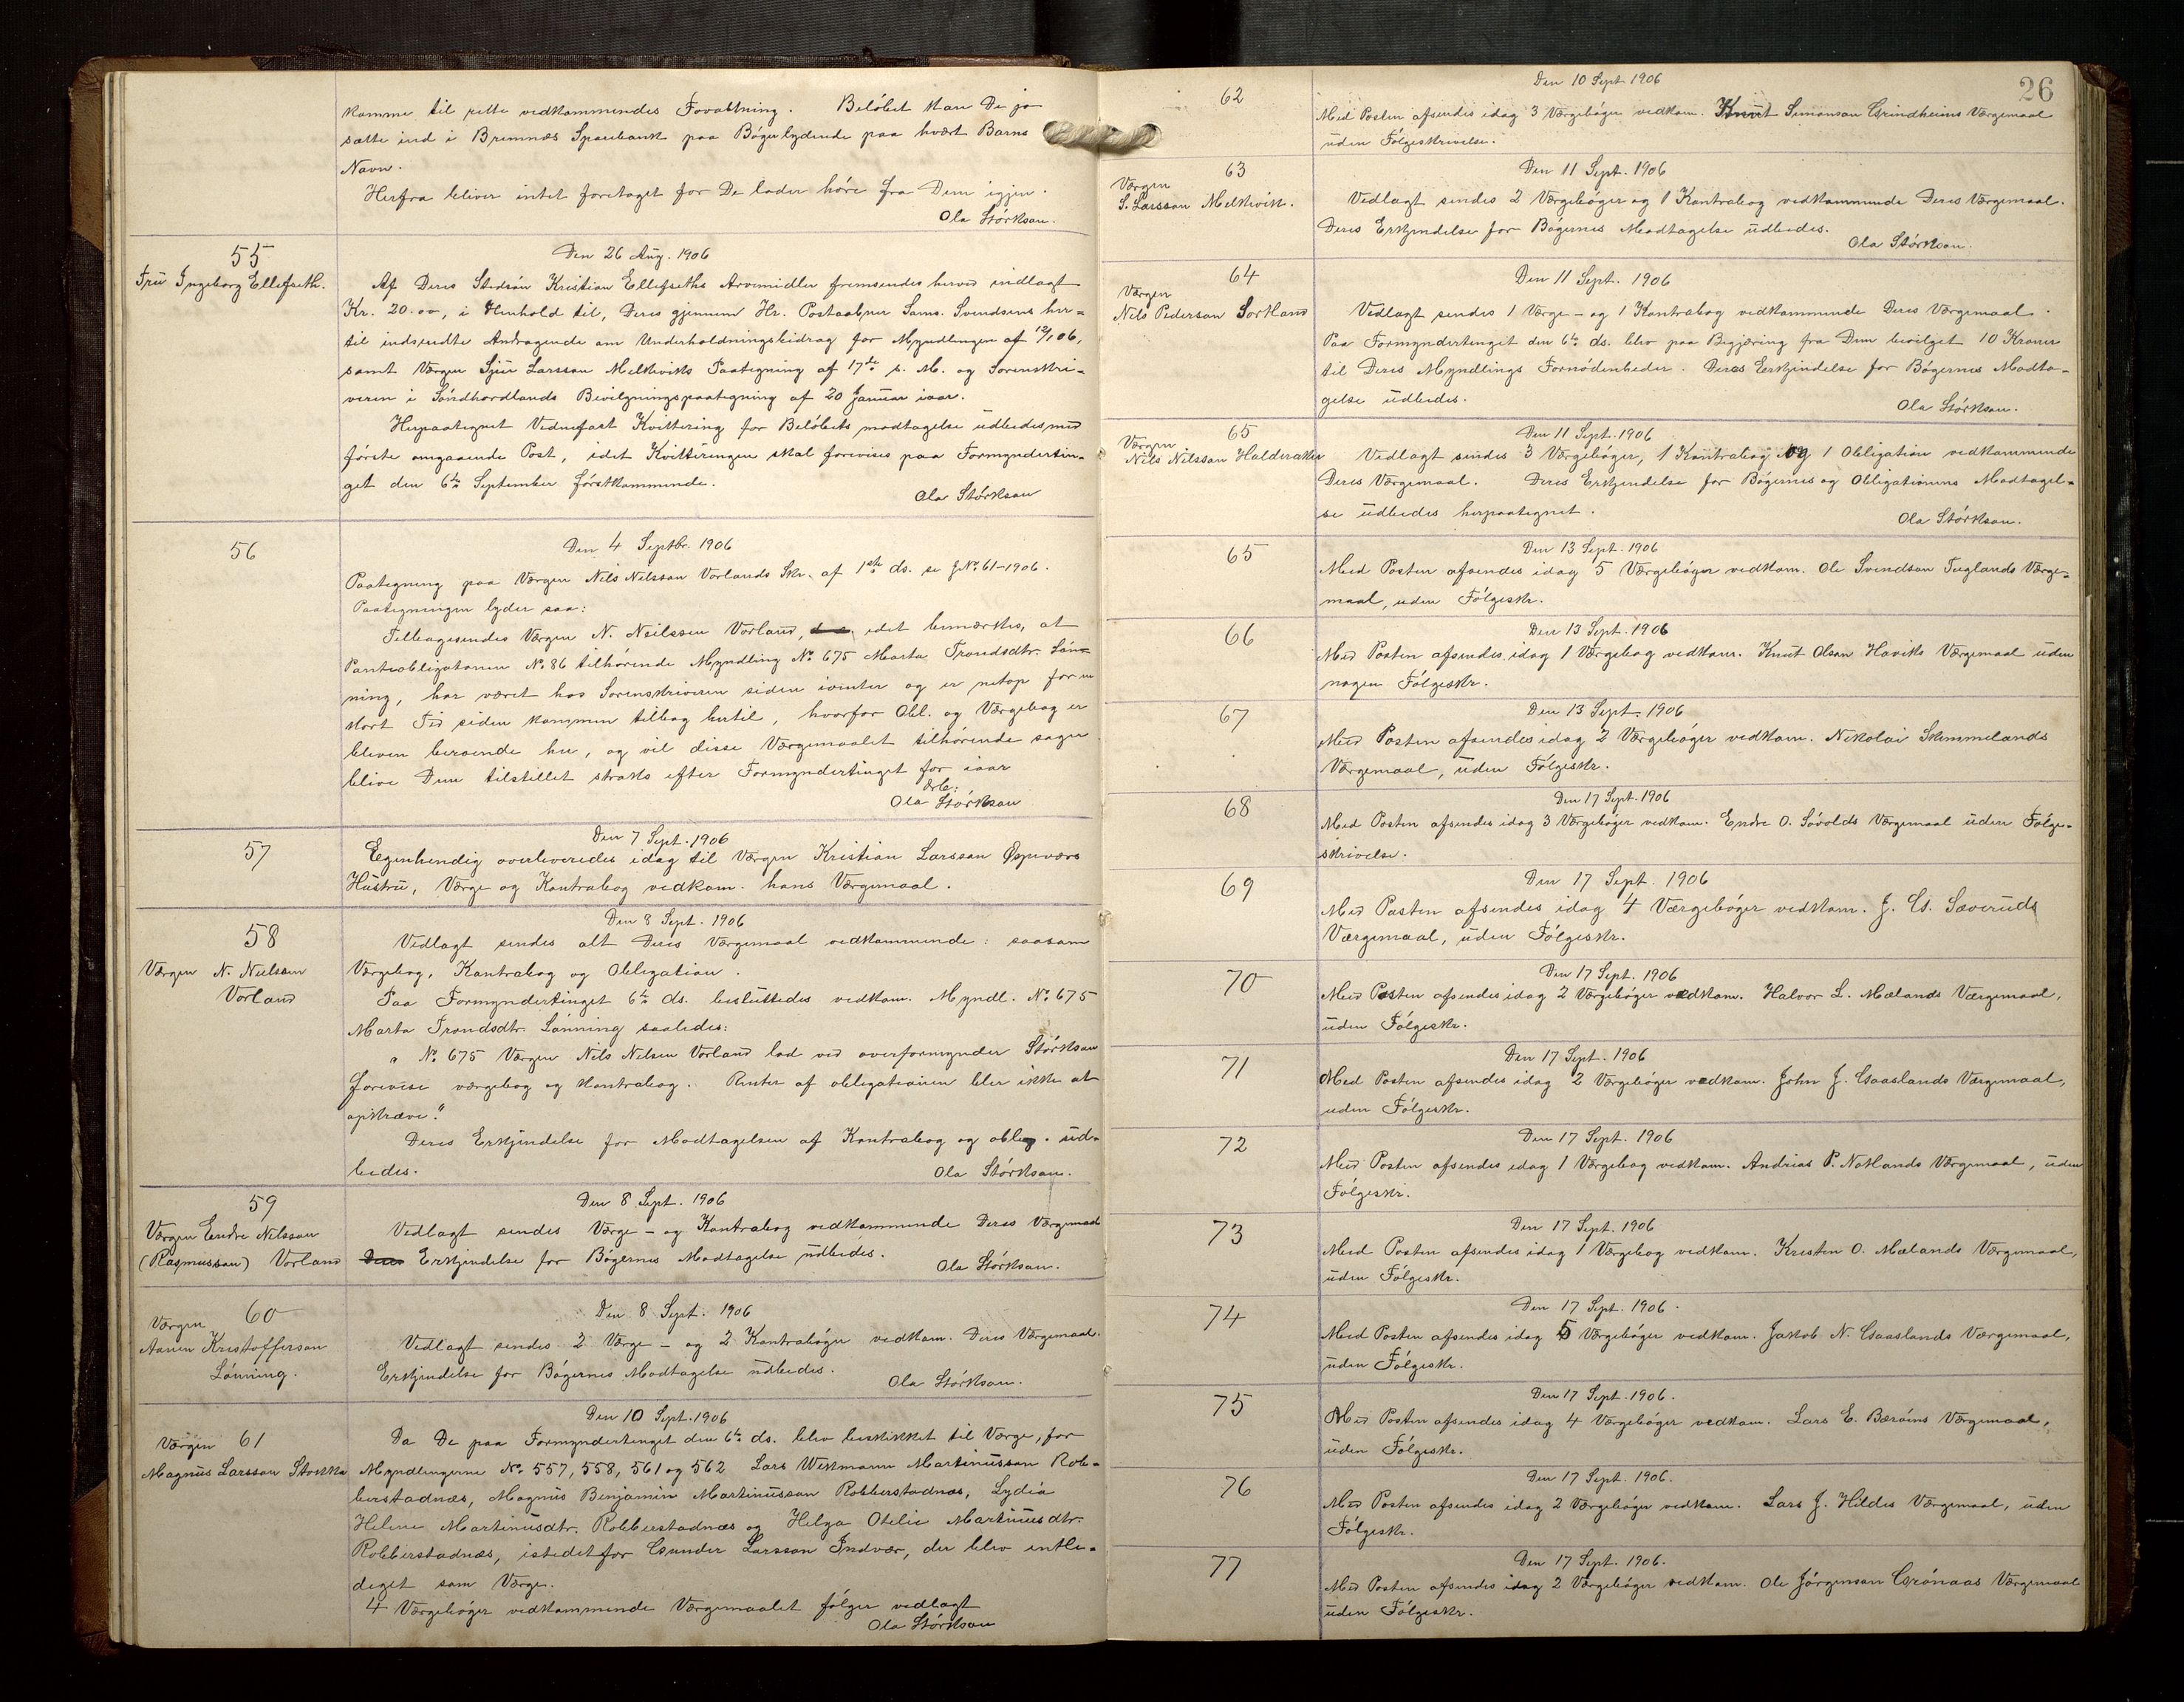 komme til rette vedkommendes Forvaltning. Beløbet kan De jo
sætte ind i Bremnæs Sparebank paa Bøger lydende paa hvert Barns
Navn.
Herfra bliver intet foretaget før De lader høre fra Dem igjen.
Ola Størkson.
55
Fru Ingeborg Ellefseth.
Den 26 Aug. 1906
Af Deres Stedsøn Kristian Ellefseths Arvemidler fremsendes herved indlagt
Kr. 20.00, i Henhold til, Deres gjennem Hr. Postaabner Sams. Svendsens her=
til indsendte Andragende om Underholdningsbidrag for Myndlingen af 12/1 06,
samt Værgen Sjur Larsson Melkeviks Paategning af 17de s. M. og Sorenskri-
veren i Søndhordlands Bevilgningspaategning af 20 Januar iaar.
Herpaategnet Vederfast Kvittering for Beløbets modtagelse udbedes med
første omgaaende Post, idet Kvitteringen skal forevises paa Formyndertin-
get den 6te September førstkommende.
Ola Størkson
56
Den 4 Septbr. 1906
Paategning paa Værgen Nils Nilsson Vorlands Skr. af 1ste ds. se J.No. 61-1906.
Paategningen lyder saa:
Tilbagesendes Værgen N. Neilssen Vorland, idet bemærkes, at
Panteobligationen No. 86 tilhørende Myndling No. 675 Marta Trondsdtr. Løn=
ning, har været hos Sorenskriveren siden ivinter og er netop for en
kort Tid siden kommen tilbag hertil, hvorfor Obl. og Værgebog er
bleven beroende her, og vil disse Værgemaalet tilhørende sager
blive Dem tilstillet straks efter Formyndertinget for iaar
Ærb:
Ola Størkson
57
Den 7 Sept. 1906
Egenhendig overleveredes idag til Værgen Kristian Larsson Øspeværs
Hustru, Værge og Kontrabog vedkom. hans Værgemaal.
58
Værgen N. Nielssen
Vorland
Den 8 Sept. 1906
Vedlagt sendes alt Deres Værgemaal vedkommende: saasom
Værgebog, Kontrabog og Obligation.
Paa Formyndertinget 6te ds. besluttedes vedkom. Myndl. No. 675
Marta Trondsdtr. Lønning saaledes:
" No. 675 Værgen Nils Nelsen Vorland lod ved overformynder Størkson
forevise værgebog og kontrabog. Renter af obligationen blir ikke at
opkræve."
Deres Erkjendelse for Modtagelsen af Kontrabog og oblig. ud=
bedes.
Ola Størkson.
59
Værgen Endre Nilsson
(Rasmusson) Vorland
Den 8 Sept. 1906
Vedlagt sendes Værge- og Kontrabog vedkommende Deres Værgemaal
Erkjendelse for Bøgernes Modtagelse udbedes.
Ola Størkson.
60
Værgen
Aanen Kristofferson
Lønning.
Den 8 Sept. 1906
Vedlagt sendes 2 Værge- og 2 Kontrabøger vedkom. Deres Værgemaal.
Erkjendelse for Bøgernes Modtagelse udbedes.
Ola Størkson.
61
Værgen
Magnus Larsson Stokka
Den 10 Sept. 1906
Da De paa Formyndertinget den 6te ds. blev beskikket til Værge, for
Myndlingerne No. 557, 558, 561 og 562 Lars Wekmann Martinusson Rob=
berstadnæs, Magnus Benjamin Martinusson Robberstadnæs, Lydia
Helene Martinusdtr. Robberstadnæs og Helga Otelie Martinusdtr.
Robberstadnæs, istedetfor Gunder Larsson Indvær, der blev entle=
diget som Værge.
4 Værgebøger vedkommende Værgemaalet følger vedlagt
Ola Størkson
26
62
Den 10 Sept. 1906
Med Posten afsendes idag 3 Værgebøger vedkom. Knut Simonson Grindheims Værgemaal
uden Følgeskrivelse.
63
Værgen
S. Larsson Melkevik.
Den 11 Sept. 1906
Vedlagt sendes 2 Værgebøger og 1 Kontrabog vedkommende Deres Værgemaal.
Deres Erkjendelse for Bøgernes Modtagelse udbedes.
Ola Størkson.
64
Værgen
Nils Pederson Sortland
Den 11 Sept. 1906
Vedlagt sendes 1 Værge- og 1 Kontrabog vedkommende Deres Værgemaal.
Paa Formyndertinget den 6te ds. blev paa Begjæring fra Dem bevilget 10 Kroner
til Deres Myndlings Fornødenheder. Deres Erkjendelse for Bøgernes Modta-
gelse udbedes.
Ola Størkson.
65
Værgen
Nils Nilsson Halderaker
Den 11 Sept. 1906
Vedlagt sendes 3 Værgebøger, 1 Kontrabog og 1 Obligation vedkommende
Deres Værgemaal. Deres Erkjendelse for Bøgernes og Obligationens Modtagel=
se udbedes herpaategnet.
Ola Størkson.
65
Den 13 Sept. 1906
Med Posten afsendes idag 5 Værgebøger vedkom. Ole Svendson Tuglands Værge=
maal, uden Følgeskr.
66
Den 13 Sept. 1906
Med Posten afsendes idag 1 Værgebog vedkom. Knut Olson Haviks Værgemaal uden
nogen Følgeskr.
67
Den 13 Sept. 1906
Med Posten afsendes idag 2 Værgebøger vedkom. Nekolai Skimmelands
Værgemaal, uden Følgeskr.
68
Den 17 Sept. 1906
Med Posten afsendes idag 3 Værgebøger vedkom. Endre O. Søvolds Værgemaal uden Følge=
skrivelse.
69
Den 17 Sept. 1906
Med Posten afsendes idag 4 Værgebøger vedkom. J. G. Sæveruds
Værgemaal, uden Følgeskr.
70
Den 17 Sept. 1906
Med Posten afsendes idag 2 Værgebøger vedkom. Halvor L. Mælands Værgemaal,
uden Følgeskr.
71
Den 17 Sept. 1906
Med Posten afsendes idag 2 Værgebøger vedkom. John J. Gaaslands Værgemaal,
uden Følgeskr.
72
Den 17 Sept. 1906
Med Posten afsendes idag 1 Værgebog vedkom. Andrias P. Notlands Værgemaal, uden
Følgeskr.
73
Den 17 Sept. 1906
Med Posten afsendes idag 1 Værgebog vedkom. Kristen O. Mælands Værgemaal,
uden Følgeskr.
74
Den 17 Sept. 1906.
Med Posten afsendes idag 5 Værgebøger vedkom. Jakob N. Gaaslands Værgemaal,
uden Følgeskr.
75
Den 17 Sept. 1906.
Med Posten afsendes idag 4 Værgebøger vedkom. Lars E. Bærøins Værgemaal,
uden Følgeskr.
76
Den 17 Sept. 1906.
Med Posten afsendes idag 2 Værgebøger vedkom. Lars J. Hildes Værgemaal, uden
Følgeskr.
77
Den 17 Sept. 1906.
Med Posten afsendes idag 2 Værgebøger vedkom. Ole Jørgenson Grønaas Værgemaal
uden Følgeskr.